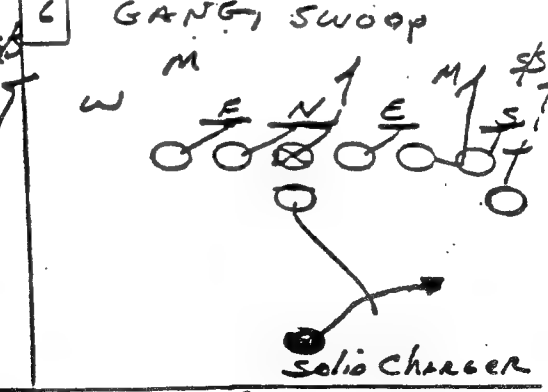 6 GANG, SWOOP
M M S/S
W E N E S
SOLID CHARGER